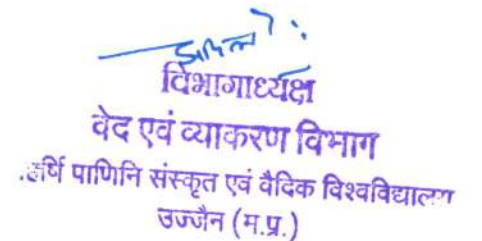 विभागाध्यक्ष
वेद एवं व्याकरण विभाग
पाणिनि संस्कृत एवं वैदिक विश्वविद्यालय
उज्जैन (म.प्र.)